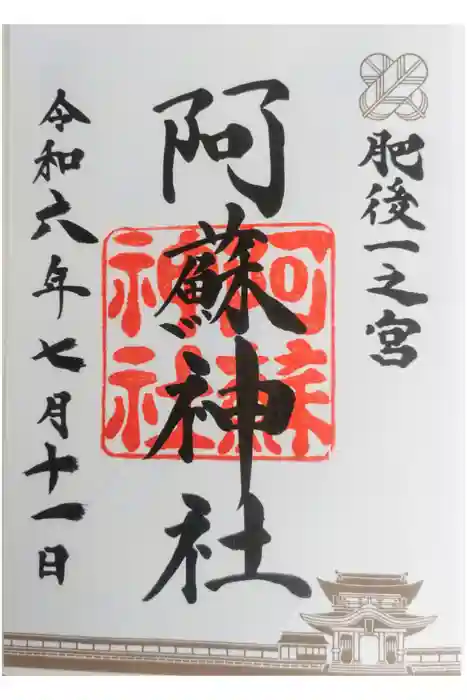 肥後一之宮
阿蘇神社
阿蘇神社
令和六年七月十一日